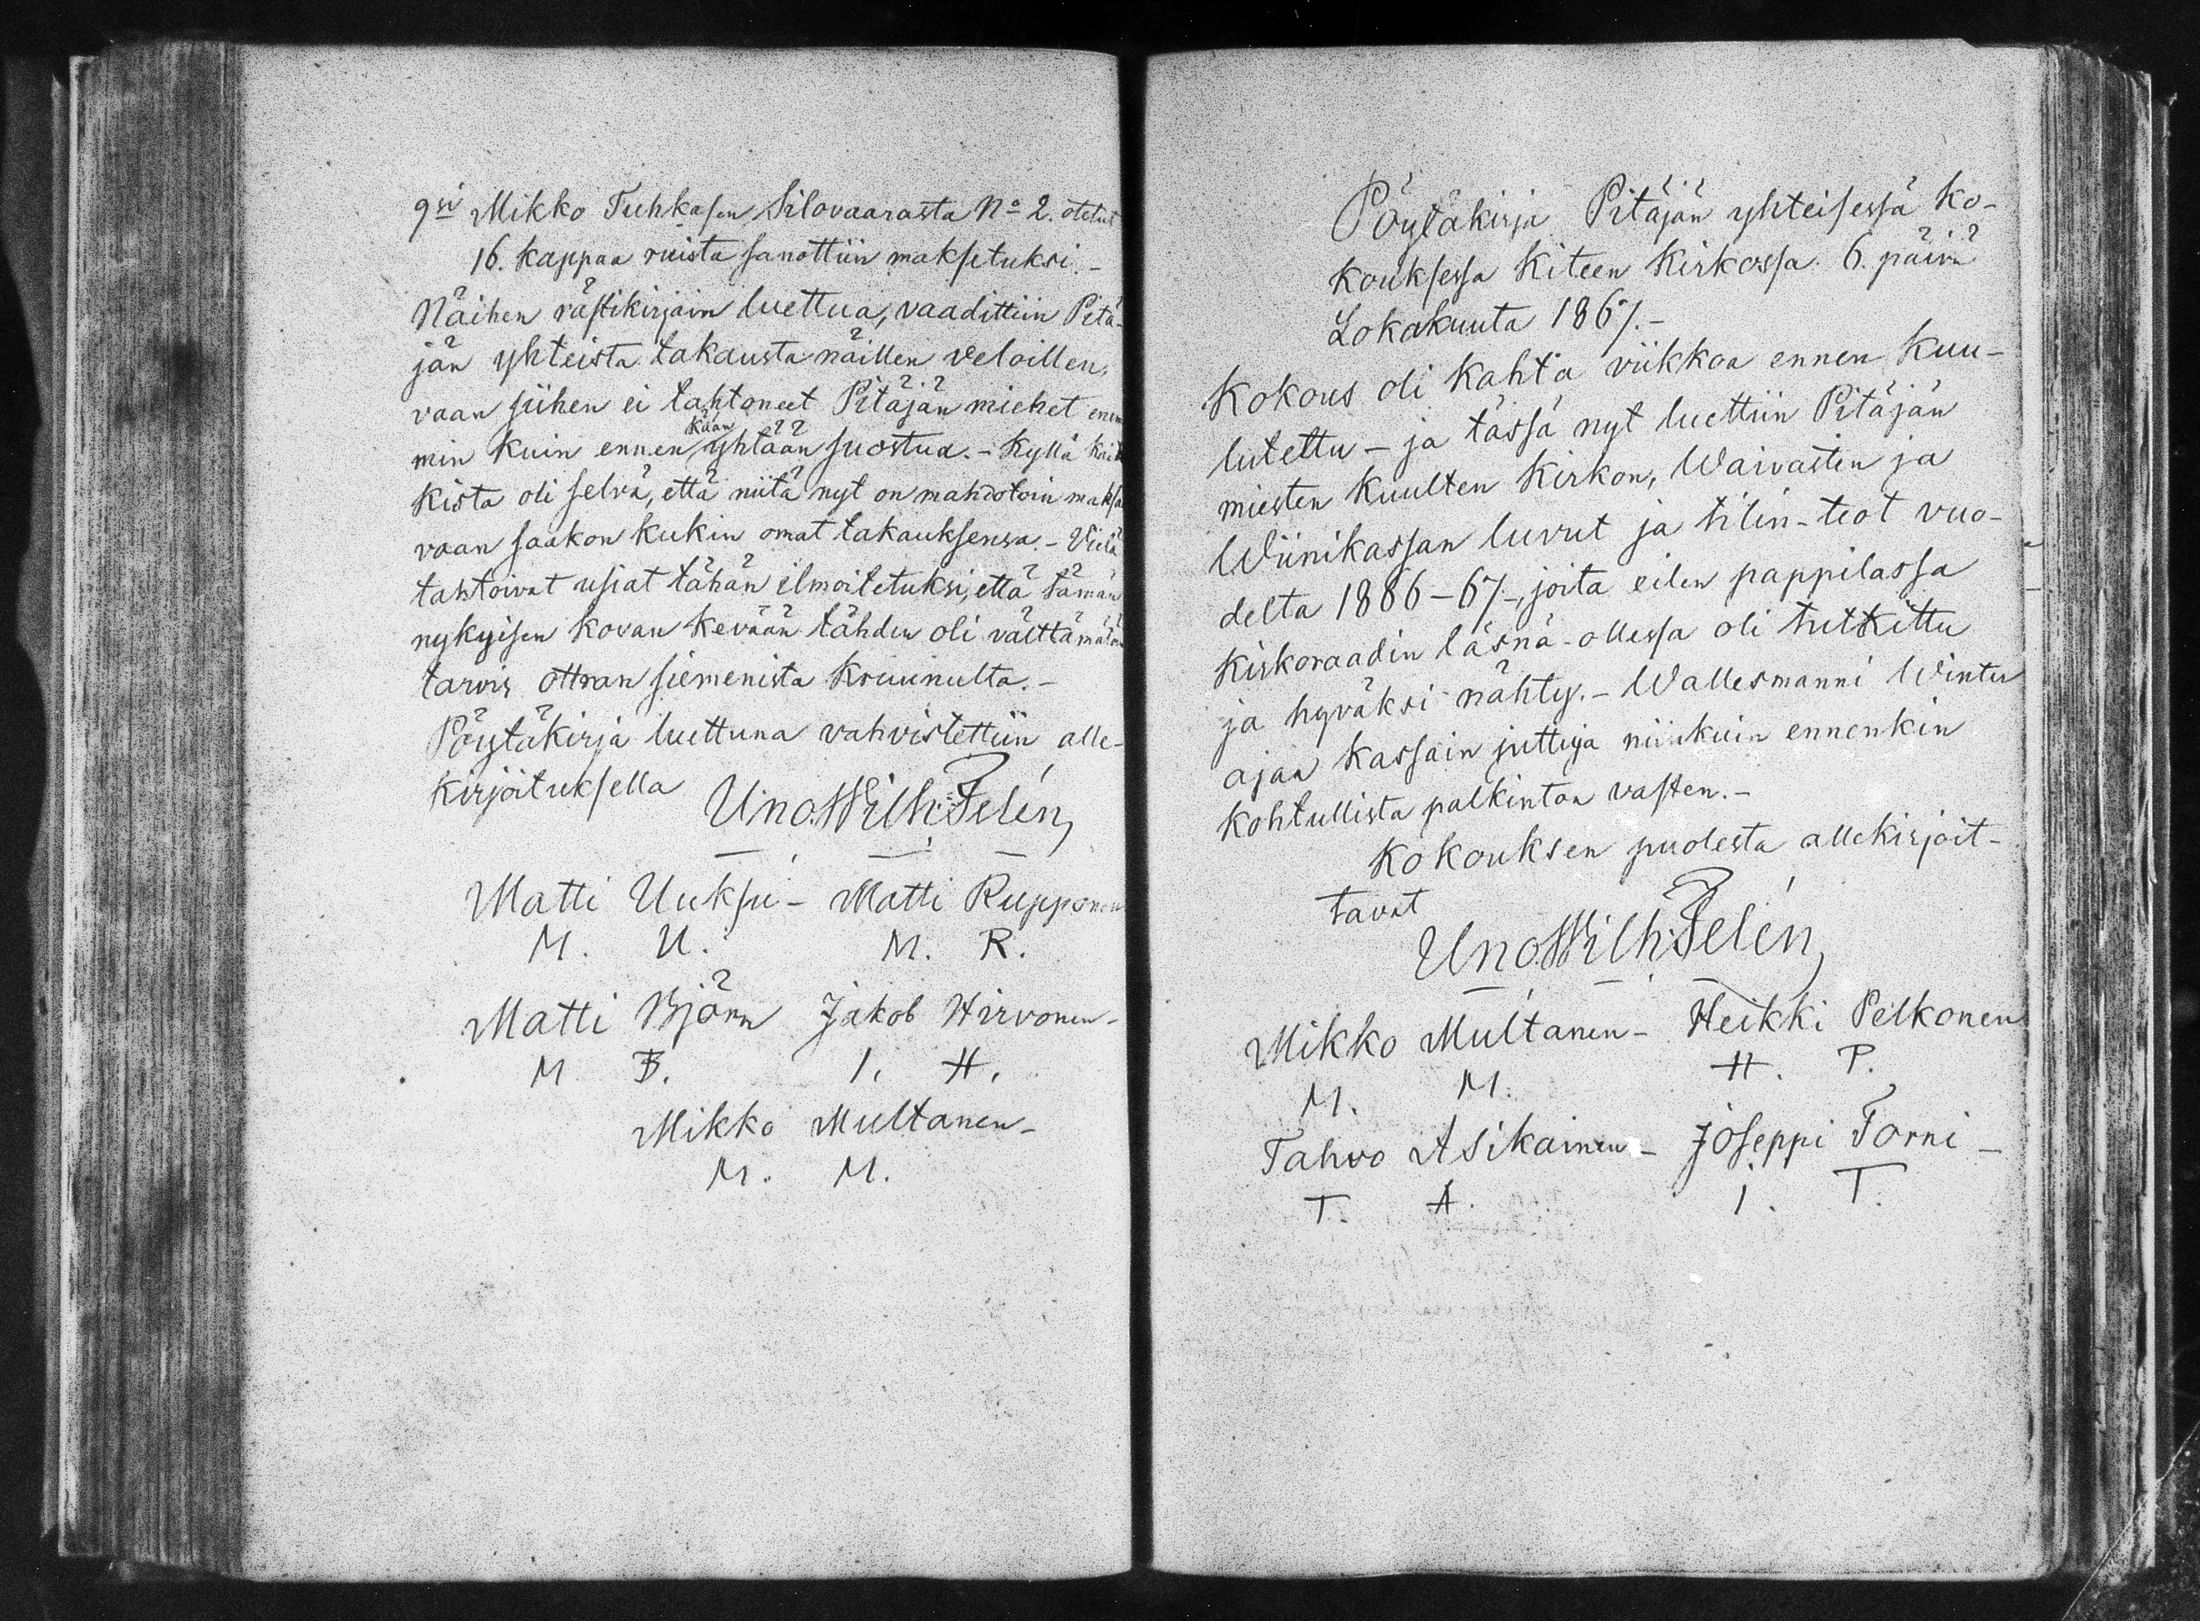 9si Mikko Tuhkasen Silovaarasta No 2. otetut
16. kappaa ruista sanottiin maksetuksi.-
Näihen rästikirjain luettua, vaadittiin Pitä-
jän yhteistä takausta näillen veloillen,
vaan siihen ei tahtoneet Pitäjän miehet enem
kään
min kuin ennen yhtään suostua.- Kyllä kaik
kista oli selvä, että niitä nyt on mahdotoin maksaa
vaan saakon kukin omat takauksensa.- Vielä
tahtoivat usiat tähän ilmoitetuksi, että tämän
nykyisen kovan kevään tähden oli välttämätön
tarvis ottran siemenistä kruunulta.-
Pöytäkirja luettuna vahvistettiin alle-
kirjoituksella
Uno Wilh: Telén
Matti Uuksu - Matti Rupponen
M. U. M. R.
Matti Björn Jakob Hirvonen-
M B. I. H.
Mikko Multanen-
M. M.
Pöytäkirja Pitäjän yhteisessä Ko-
kouksessa Kiteen Kirkossa 6. päivä
Lokakuuta 1867.-
Kokous oli kahta viikkoa ennen kuu-
lutettu - ja tässä nyt luettiin Pitäjän
miesten kuulten Kirkon, Waivasten ja
Wiinikassan luvut ja tilin-teot vuo-
delta 1866-67-, joita eilen pappilassa
kirkoraadin läsnä-ollessa oli tutkittu
ja hyväksi nähty.- Wallesmanni Winter
ajaa kassain juttuja niinkuin ennenkin
kohtullista palkintoa vasten.-
Kokouksen puolesta allekirjoit-
tavat
Uno Wilh: Telén
Mikko Multanen- Heikki Pelkonen
M. M. H. P.
Tahvo Asikainen - Joseppi Torni -
T. A. I. T.